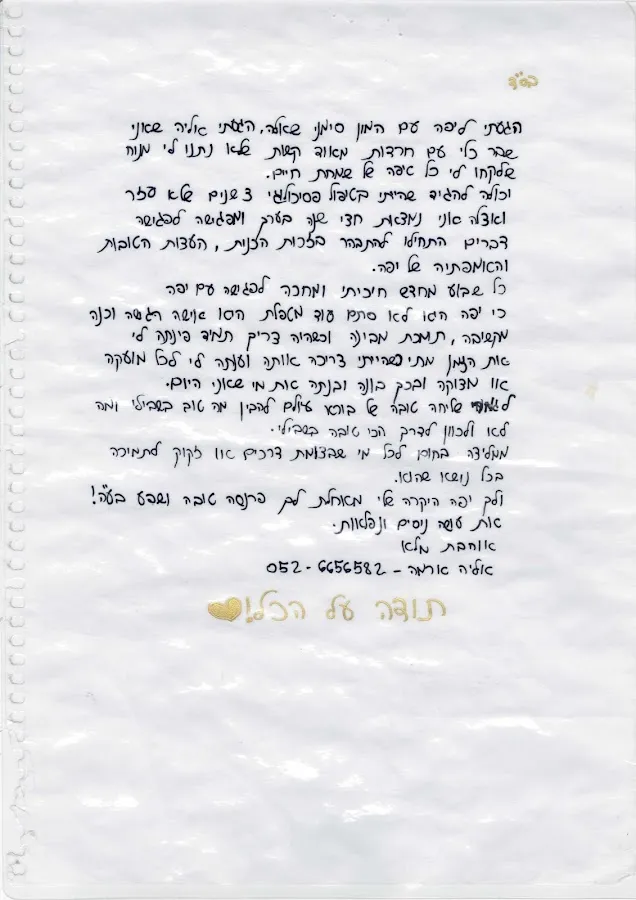 בס"ד
הגעתי ליפה עם המון סימני שאלה, הגעתי אליה שאני
שבר כלי עם חרדות מאוד קשות שלא נתנו לי מנוח
שלקחו לי כל טיפה של שמחת חיים.
יכולה להגיד שהייתי בטיפול פסיכולוגי 3 שנים שלא עזר
ואצלה אני נמצאת חצי שנה בערך ומפגישה לפגישה
דברים התחילו להתבהר בזכות הכנות, העצות הטובות
והאמפתיה של יפה.
כל שבוע מחדש חיכיתי ומחכה לפגישה עם יפה
כי יפה היא לא סתם עוד מטפלת היא אישה רגישה וכנה
מקשיבה, תומכת מבינה וכשהיה צריך תמיד פינתה לי
את הזמן מתי שהייתי צריכה אותה וענתה לי לכל מועקה
או מצוקה ובכך בונה ובנתה את מי שאני היום.
שליחה טובה של בורא עולם להבין מה טוב בשבילי ומה
לא ולכוון לדרך הכי טובה בשבילי.
ממליצה בחום לכל מי שבצומת דרכים או זקוק לתמיכה
בכל נושא שהוא.
ולך יפה היקרה שלי מאחלת לך פרנסה טובה ושפע בע"ה!
את עושה ניסים ונפלאות.
אוהבת מלא
אליה ארמה - 052-6656582
תודה על הכל!